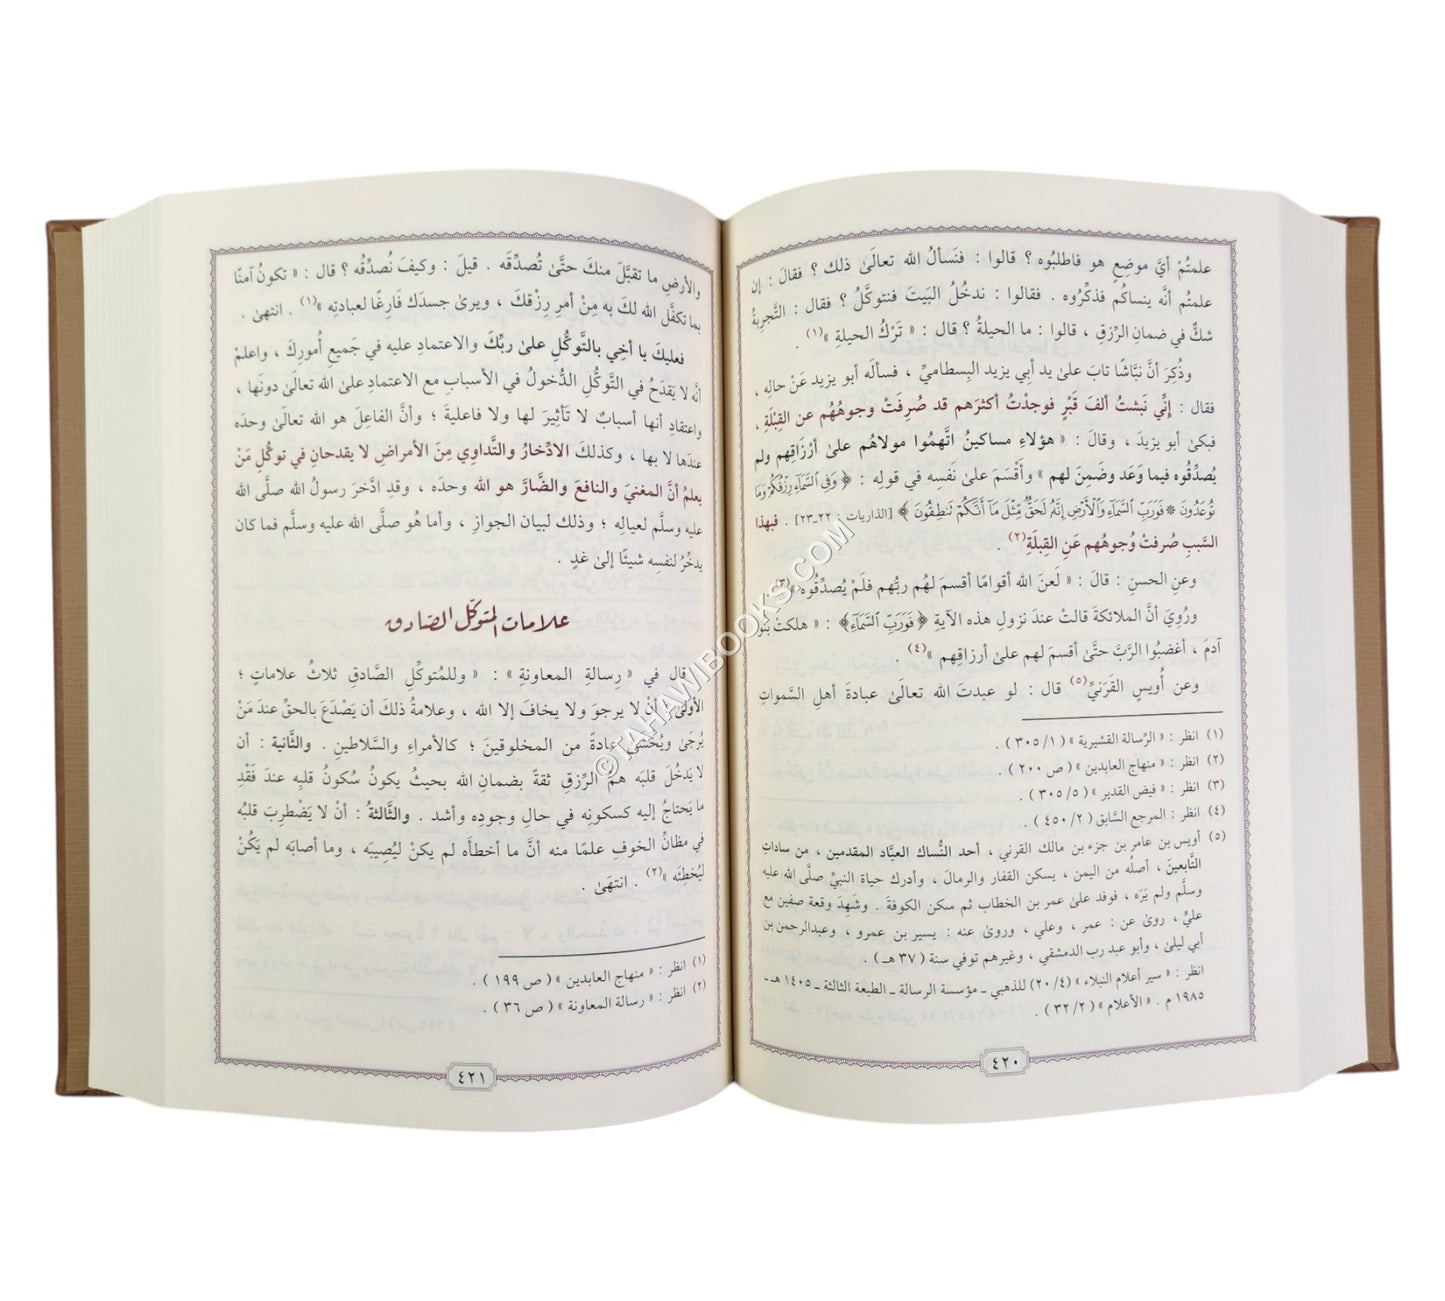 علمتُمْ أيَّ موضِعٍ هو فاطلبُوه ؟ قالوا : فنَسألُ الله تعالَىٰ ذلك ؟ فقالَ : إن
علمتُم أنَّه ينساكُم فذكِّرُوه . فقالوا : ندخُلُ البَيتَ فنتوكَّلُ ؟ فقال : التَّجرِبةُ
شكٌّ في ضمانِ الرِّزقِ ، قالوا : ما الحيلةُ ؟ قال : « تَرْكُ الحيلةِ »(١) .
وذُكِرَ أنَّ نبَّاشًا تابَ علىٰ يد أبي يزيد البِسطاميِّ ، فسألَه أبو يزيد عَنْ حالِه ،
فقال : إنِّي نَبشتُ ألفَ قَبْرٍ فوجدْتُ أكثرَهم قد صُرِفَتْ وجوهُهُم عن القِبْلَةِ ،
فبكىٰ أبو يزيدَ ، وقالَ : « هؤلاءِ مساكينُ اتَّهمُوا مولاهُم علىٰ أرْزاقِهم ولم
يُصدِّقُوه فيما وَعَد وضَمِنَ لهم » وأقْسَمَ علىٰ نَفسِه في قولِه : ﴿ وَفِى ٱلسَّمَآءِ رِزْقُكُمْ وَمَا
تُوعَدُونَ * فَوَرَبِّ ٱلسَّمَآءِ وَٱلْأَرْضِ إِنَّهُۥ لَحَقٌّ مِّثْلَ مَآ أَنَّكُمْ تَنطِقُونَ ﴾ [الذاريات : ٢٢-٢٣] . فبهذا
السَّببِ صُرِفتْ وُجوهُهم عَنِ القِبلَةِ(٢) .
وعنِ الحسنِ : قالَ : « لَعنَ الله أقوامًا أقسمَ لهُم ربُّهم فلَمْ يُصدِّقُوه »(٣) .
ورُوِيَ أنَّ الملائكةَ قالتْ عندَ نزولِ هذه الآيةِ ﴿ فَوَرَبِّ ٱلسَّمَآءِ ﴾ : « هلكتْ بنُو
آدمَ ، أغضبُوا الرَّبَّ حتَّىٰ أقسمَ لهم علىٰ أرزاقِهم »(٤) .
وعن أُويسٍ القَرَنيِّ(٥) قال : لو عبدتَ الله تعالَىٰ عبادةَ أهلِ السَّمواتِ
(١) انظر : « الرِّسالة القشيرية » (١/ ٣٠٥) .
(٢) انظر : « منهاج العابدين » (ص ٢٠٠) .
(٣) انظر : « فيض القدير » (٥/ ٣٠٥) .
(٤) انظر : المرجع السَّابق (٢/ ٤٥٠) .
(٥) أويس بن عامر بن جزء بن مالك القرني ، أحد النُّساك العبَّاد المقدمين ، من ساداتِ
التَّابعينَ ، أصلُه من اليمن ، يسكن القفار والرمالَ ، وأدرك حياة النبيِّ صلَّى الله عليه
وسلَّم ولم يَرَه ، فوفد علىٰ عمر بن الخطاب ثم سكن الكوفةَ . وشَهِدَ وقعة صفين مع
عليٍّ ، روىٰ عن : عمر ، وعلي ، وروىٰ عنه : يسير بن عمرو ، وعبدالرحمن بن
أبي ليلىٰ ، وأبو عبد رب الدمشقي ، وغيرهم توفي سنة (٣٧ هـ) .
انظر : « سير أعلام النبلاء » (٤/ ٢٠) للذهبي ـ مؤسسة الرسالة ـ الطبعة الثالثة ـ ١٤٠٥ هـ ـ
١٩٨٥ م . « الأعلام » (٢/ ٣٢) .
٤٢٠
والأرضِ ما تقبَّلَ منكَ حتَّىٰ تُصدِّقَه . قيلَ : وكيفَ نُصدِّقُه ؟ قال : « تكونُ آمنًا
بما تكفَّل الله لكَ به مِنْ أمرِ رِزْقكَ ، ويرىٰ جسدَك فَارِغًا لعبادتِه »(١) . انتهىٰ .
فعليكَ يا أخِي بالتَّوكُّلِ علىٰ ربِّكَ والاعتمادِ عليه في جَميعِ أُمورِكَ ، واعلمْ
أنَّه لا يَقدَحُ في التَّوكُّلِ الدُّخولُ في الأسبابِ مع الاعتمادِ علىٰ الله تعالَىٰ دونَها ،
واعتقادِ أنها أسبابٌ لا تَأثِيرَ لها ولا فاعليةَ ؛ وأنَّ الفاعِلَ هو الله تعالَىٰ وحدَه
عندَها لا بها ، وكذلكَ الادِّخارُ والتَّداوِي مِنَ الأمراضِ لا يقدحانِ في توكُّلِ مَنْ
يعلمُ أنَّ المغنيَ والنافعَ والضَّارَّ هو الله وحدَه ، وقدِ ادَّخرَ رسولُ الله صلَّى الله
عليه وسلَّم لعيالِه ؛ وذلك لبيان الجوازِ ، وأما هُو صلَّى الله عليه وسلَّم فما كان
يدخِّرُ لنفسه شيئًا إلىٰ غدٍ .
علامات المتوكّل الصّادق
قال في « رِسالةِ المعاونةِ » : « وللمُتوكِّلِ الصَّادقِ ثلاثُ علاماتٍ ؛
الأولىٰ : أنْ لا يرجوَ ولا يخافَ إلا الله ، وعلامةُ ذلكَ أن يَصْدَعَ بالحقِّ عندَ مَنْ
يُرجَىٰ ويُخشَىٰ عادةً من المخلوقينَ ؛ كالأمراءِ والسَّلاطينِ . والثَّانية : أن
لا يَدخُلَ قلبَه همُّ الرِّزقِ ثقةً بضمانِ الله بحيثُ يكونُ سُكونُ قلبِه عندَ فَقْدِ
ما يَحتاجُ إليه كسكونِه في حالِ وجودِه وأشد . والثَّالثةُ : أنْ لا يَضْطرِبَ قلبُه
في مظانِّ الخوفِ علمًا منه أنَّ ما أخطأَه لم يكنْ ليُصِيبَه ، وما أصابَه لم يَكُنْ
ليُخطِئَه »(٢) . انتهَىٰ .
(١) انظر : « منهاج العابدين » (ص ١٩٩) .
(٢) انظر : « رسالة المعاونة » (ص ٣٦) .
٤٢١
©TAHAWIBOOKS.COM